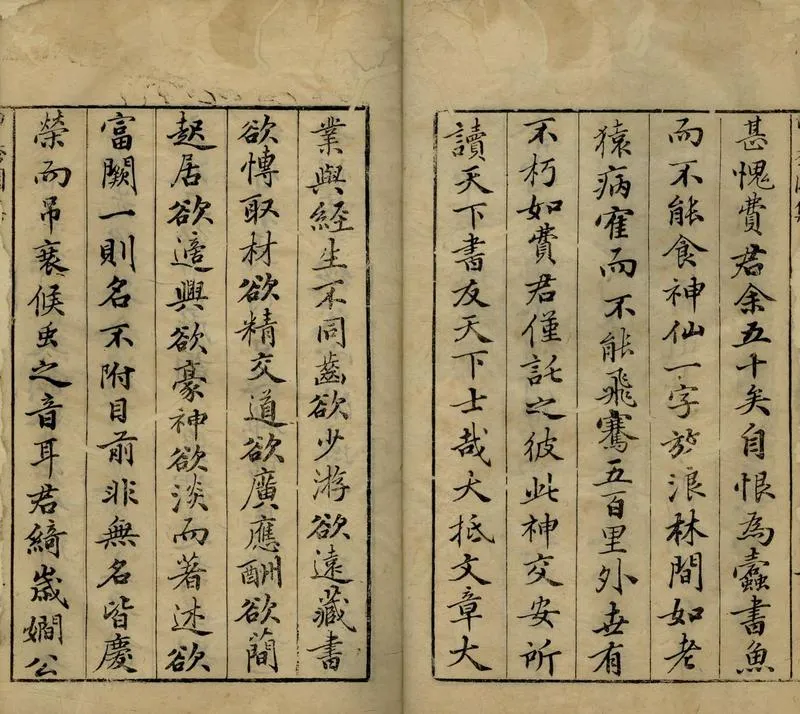 甚愧費君余五十矣自恨為蠹書魚
而不能食神仙一字於浪林間如老
猿病寉而不能飛騫五百里外世有
不朽如費君僅託之彼此神交安所
讀天下書友天下士哉大抵文章大
業與經生不同齒欲少游欲遠藏書
欲博取材欲精交道欲廣應酬欲簡
起居欲適興欲豪神欲淡而著述欲
富闕一則名不附目前非無名皆慶
榮而吊衰候虫之音耳君綺歲嫺公